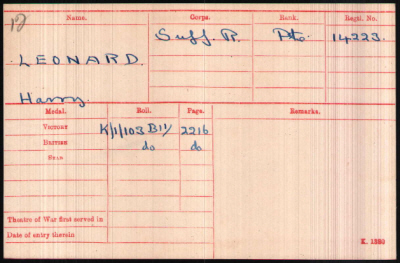 Name. Corps. Rank. Regtl. No.
LEONARD. Suff. R. Pte. 14223.
Harry.
Medal. Roll. Page. Remarks.
VICTORY K/1/103 B11/ 2216
BRITISH do do
STAR
Theatre of War first served in
Date of entry therein
K. 1380